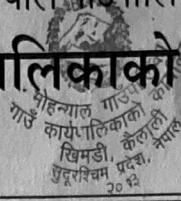 लिकाको
मोहन्याल गाउँपा
गाउँ कार्यपालिकाको का
खिमडी, कैलाली
सुदूरपश्चिम प्रदेश, नेपाल
२०१३